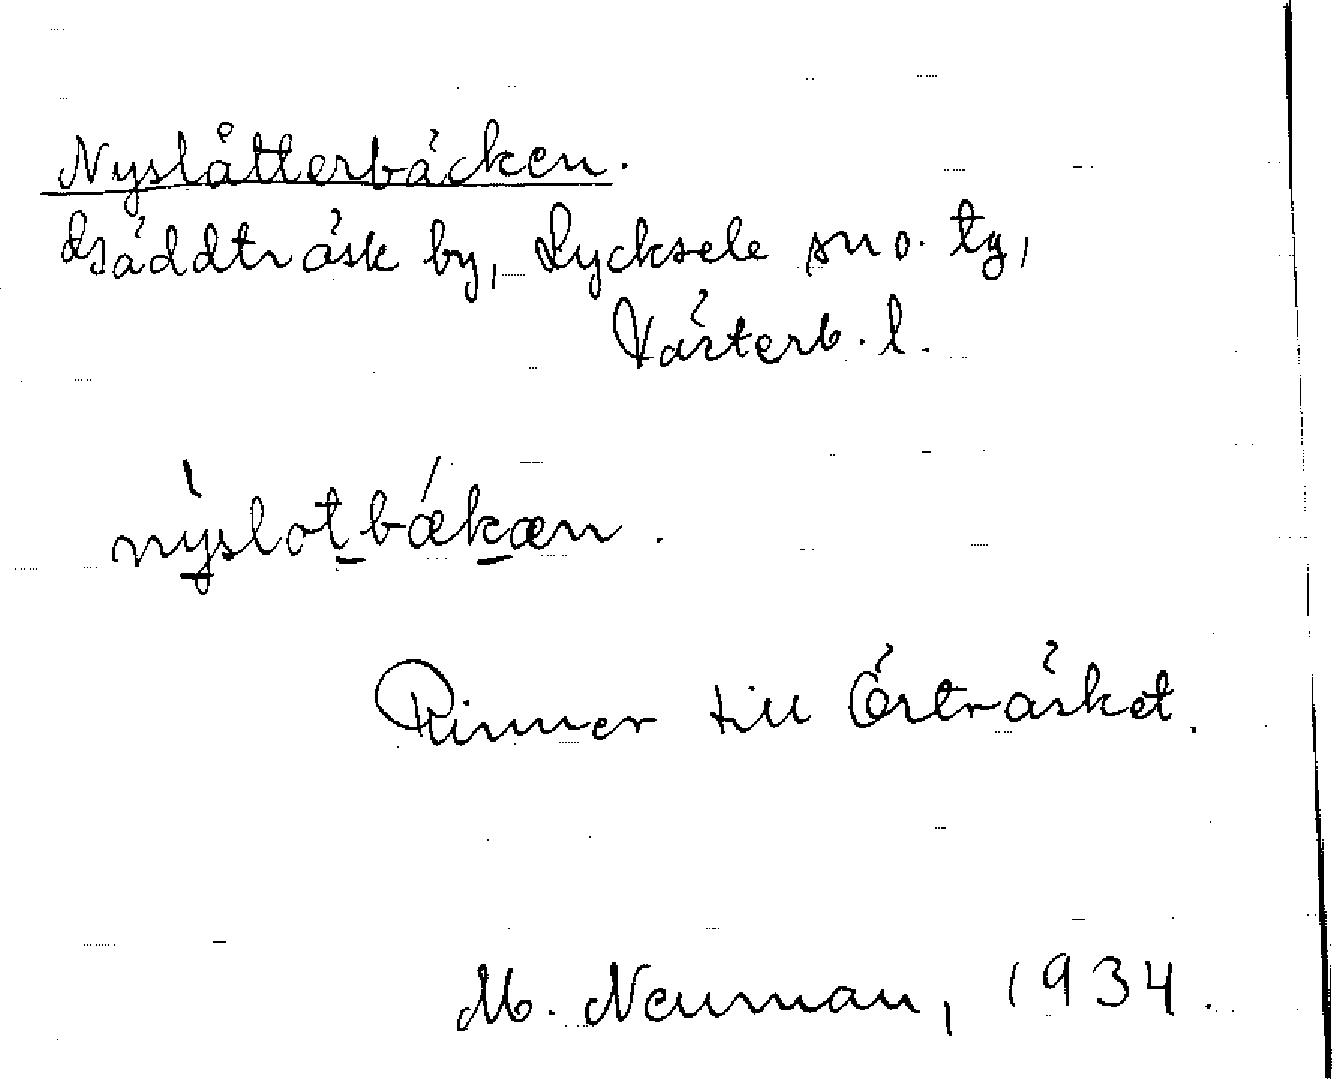 Nyslåtterbäcken.
Gäddträsk by, Lycksele sn o. tg,
Västerb. l.
nyslotbækæn.
Rinner till Örträsket.
M. Neuman, 1934.